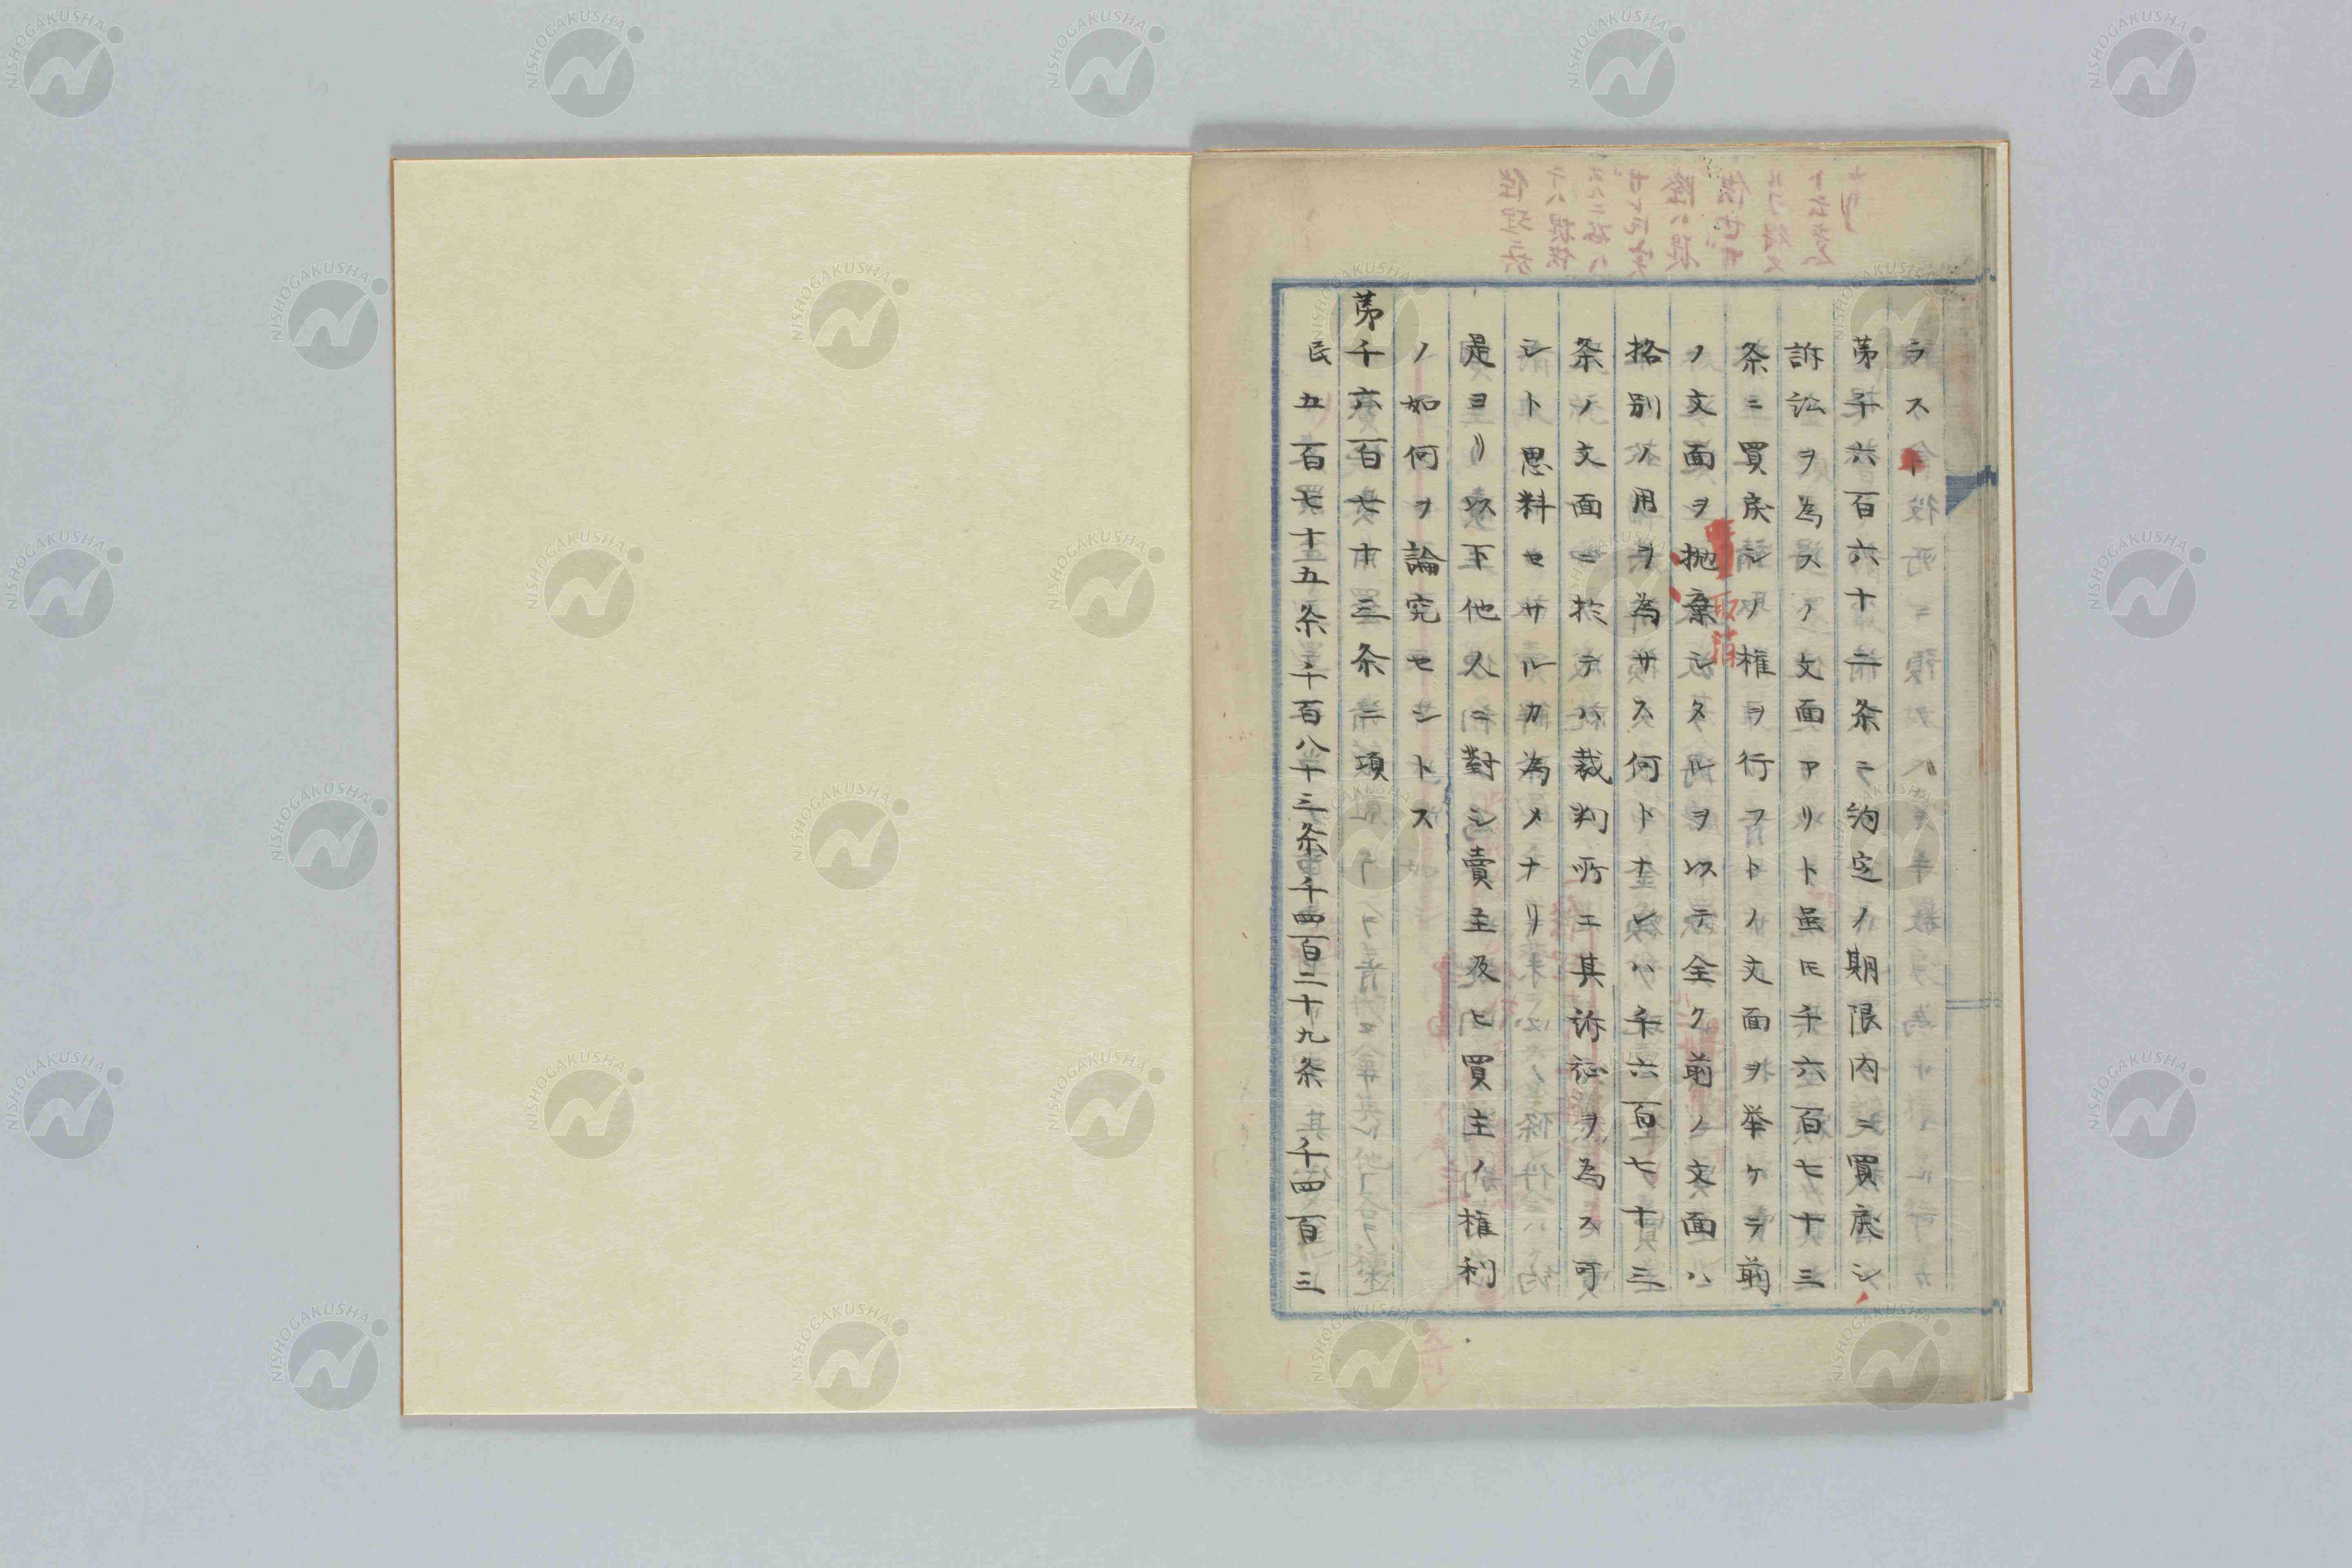 ラス
第千六百六十二条ニ約定ノ期限内ニ買戻シ
訴訟ヲ為スノ文面アリト虽𪜈千六百七十三
条ニ買戻シノ権ヲ行フトノ文面ヲ挙ケテ前
ノ文面ヲ抛棄シタルヲ以テ全ク前ノ文面ハ
取消
格別ノ用ヲ為サス何トナレハ千六百七十三
条ノ文面ニ於テハ裁判所エ其訴訟ヲ為ス可
シト思料セサルカ為メナリ
是ヨリ以下他人ニ對シ賣主及ヒ買主ノ権利
ノ如何ヲ論究セントス
第千六百七十三条二項
民五百七十五条千百八十三条千四百二十九条 千四百三
NISHOGAKUSHA